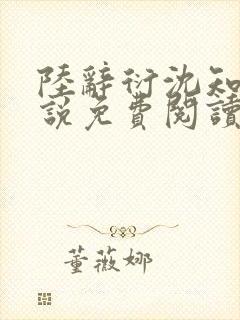 陸辭衍沈知
說免費閱讀
董薇娜